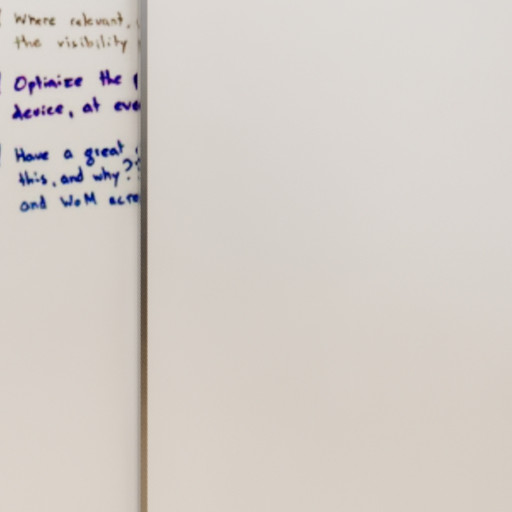 Where relevant,
the visibility
Optimize the
device, at eve
Have a great
this, and why??
and WoM acro